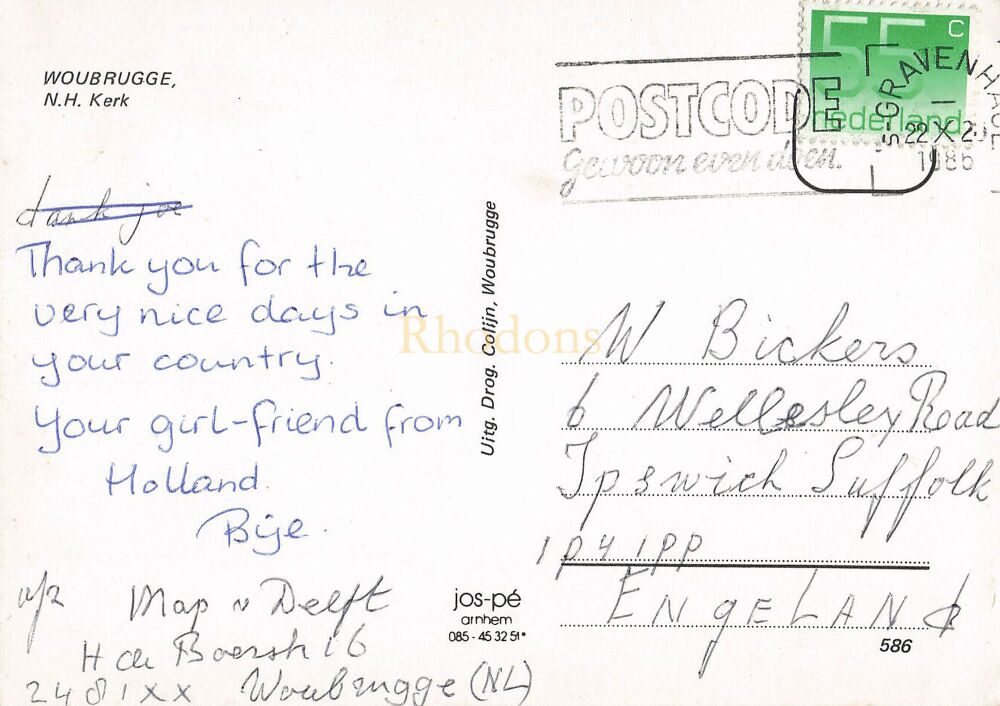 WOUBRUGGE,
N.H. Kerk
55 c
nederland
POSTCODE
gewoon even doen.
'S-GRAVENHAG
22 X
1986
dank joe
Thank you for the
very nice days in
your country.
Your girl-friend from
Holland.
Bije.
Map v Delft
H de Boerstr 16
2481XX Woubrugge (NL)
Uitg. Drog. Colijn, Woubrugge
Rhodons
jos-pé
arnhem
085-45 32 51*
W Bickers
6 Wellesley Road
Ipswich Suffolk
1p4 1pp
ENgELANd
586